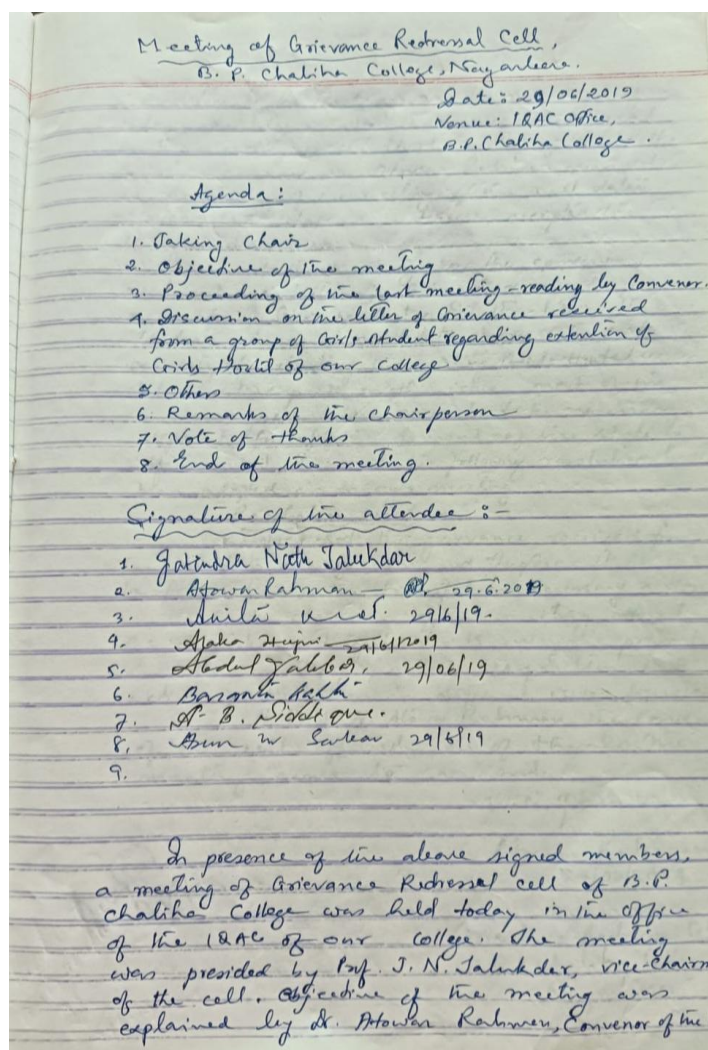 Meeting of Grievance Redressal Cell,
B. P. Chaliha College, Nagarbera.
Date: 29/06/2019
Venue: IQAC Office,
B.P. Chaliha College.
Agenda:
1. Taking Chair
2. Objective of the meeting
3. Proceeding of the last meeting - reading by Convenor.
4. Discussion on the letter of Grievance received
from a group of Girls student regarding extention of
Girls Hostel of our College
5. Others
6. Remarks of the Chairperson
7. Vote of thanks
8. End of the meeting.
Signature of the attendee :-
1. Jatindra Nath Talukdar
2. Atowar Rahman - 29.6.2019
3. Anita 29/6/19.
4. 29/6/2019
5. Abdul Jabbar, 29/06/19
6.
7. A. B. Siddique.
8. Sarkar 29/6/19
9.
In presence of the above signed members,
a meeting of Grievance Redressal cell of B.P.
Chaliha College was held today in the office
of the IQAC of our College. The meeting
was presided by Prof. J. N. Talukdar, vice-Chairm
of the cell. Objective of the meeting was
explained by Dr. Atowar Rahman, Convenor of the